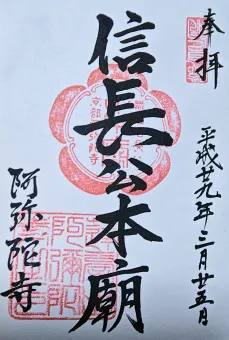 奉拝
信長公本廟
平成廿九年三月廿五日
阿弥陀寺